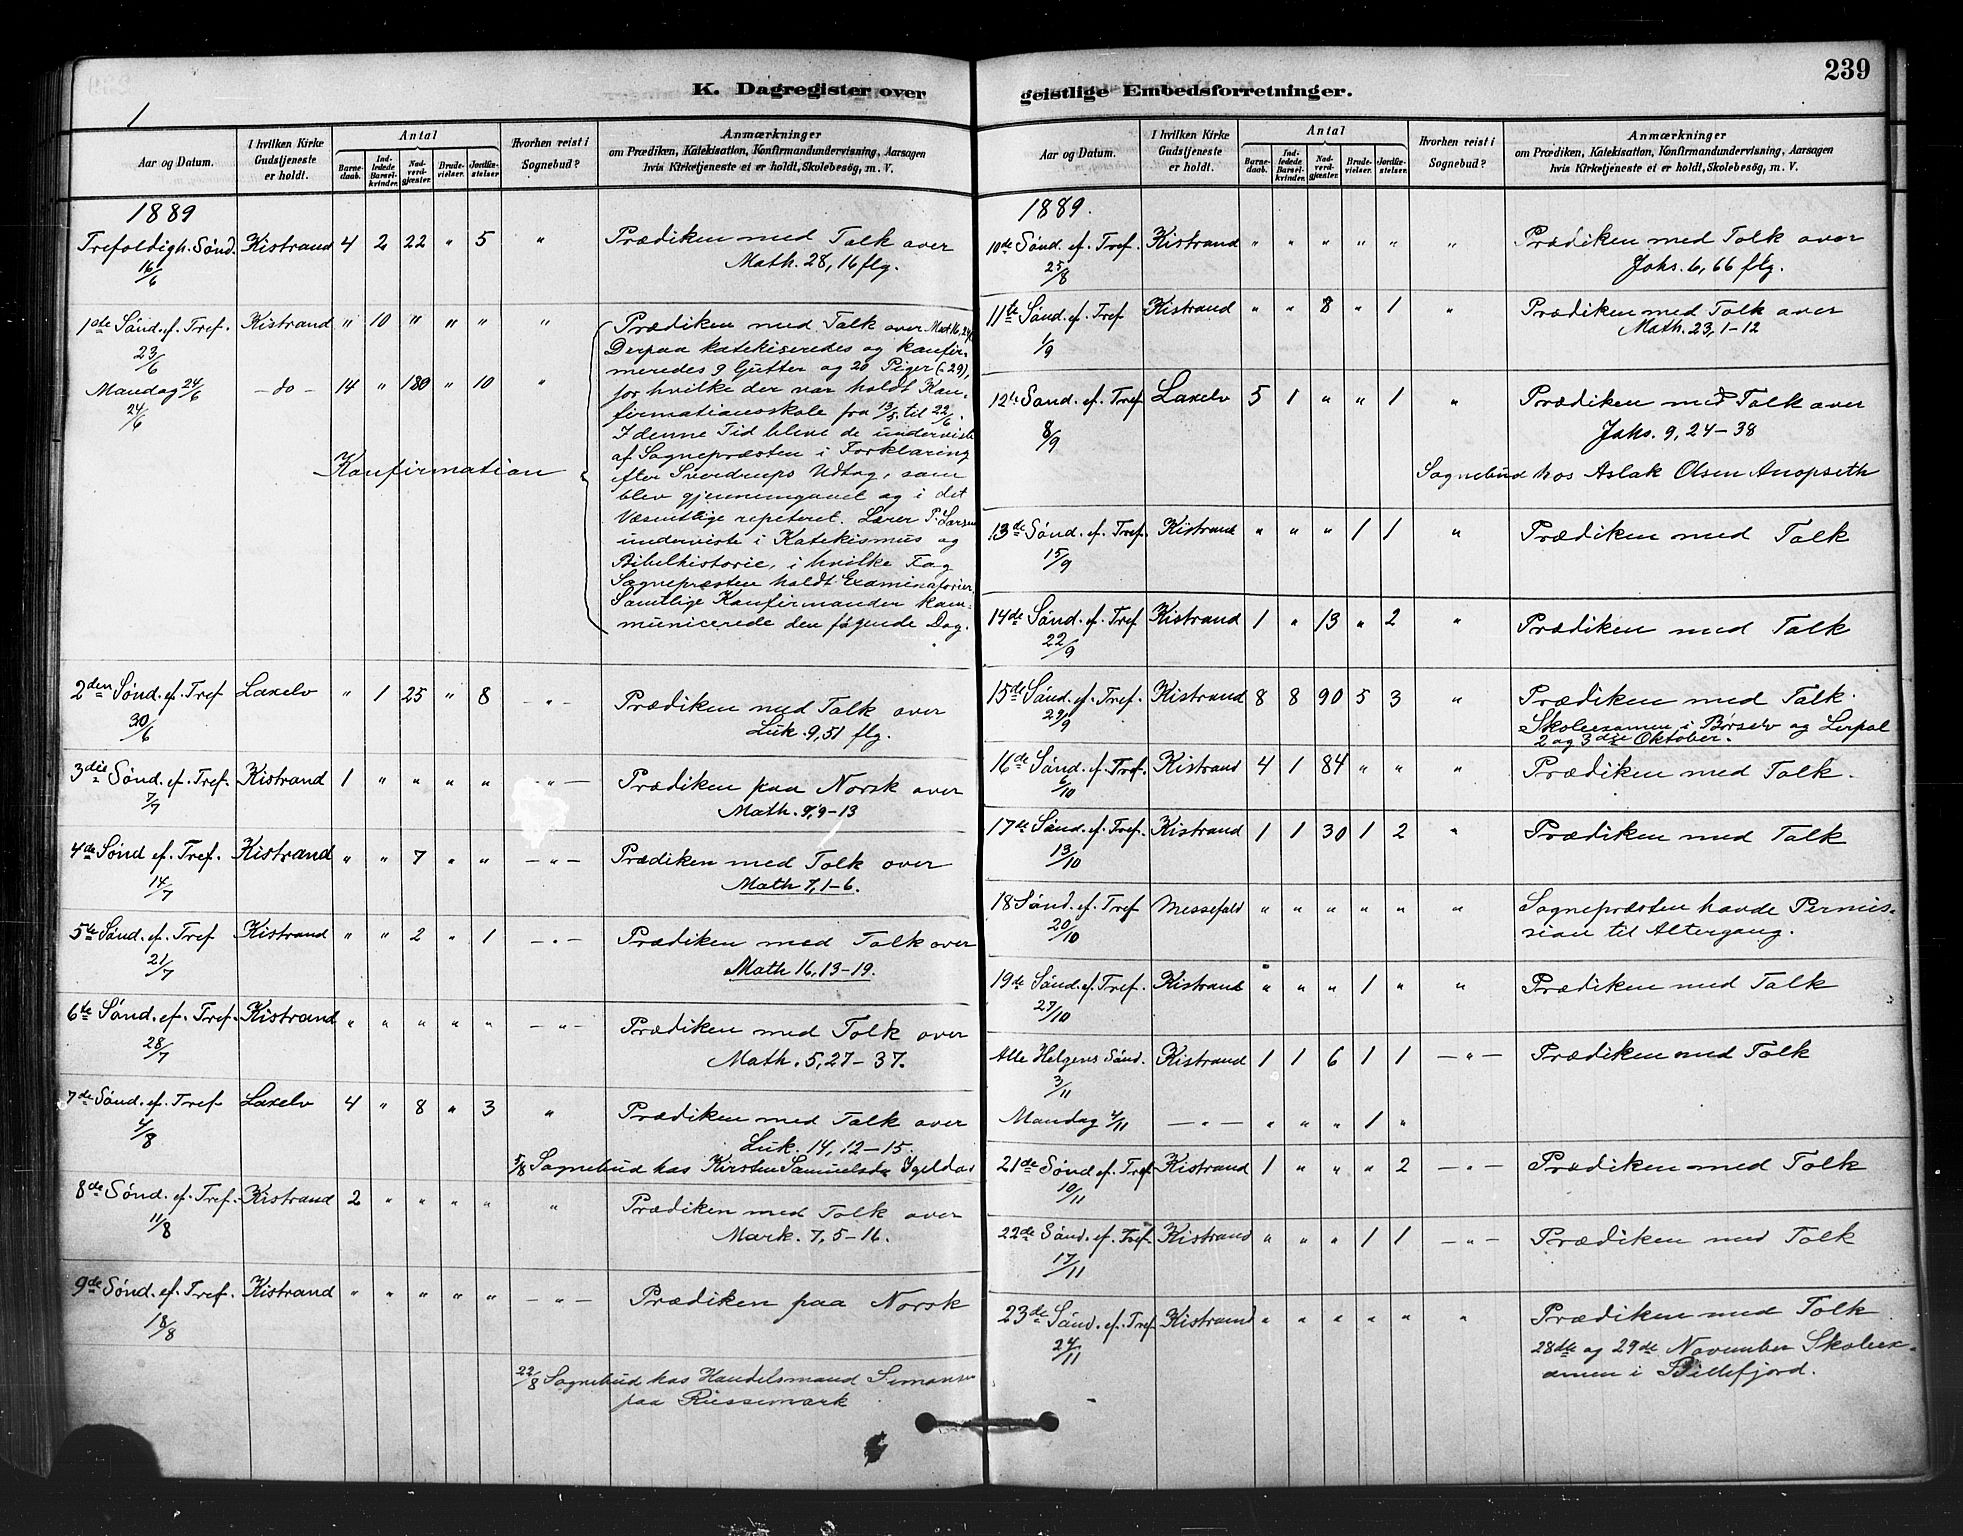 K. Dagregister over
1
Aar og Datum. I hvilken Kirke Gudstjeneste er holdt. Antal Barnedaab. Indledede Barselkvinder. Nadverdgjæster. Brudevielser. Jordfæstelser. Hvorhen reist i Sognebud? Anmærkninger om Prædiken, Katekisation, Konfirmandundervisning, Aarsagen hvis Kirketjeneste ei er holdt, Skolebesøg, m. V.
1889
Trefoldigh. Sønd. Kistrand 4 2 22 " 5 " Prædiken med Tolk over
16/6 Math. 28, 16 flg.
1ste Sønd. ef. Tref. Kistrand " 10 " " " " Prædiken med Tolk over Mat 16, 24
23/6 Derpaa katekiseredes og konfir-
meredes 9 Gutter og 20 Piger (: 29),
Mandag 24/6 - do - 14 " 180 " 10 " for hvilke der var holdt Kon-
24/6 firmationsskole fra 13/5 til 22/6.
I denne Tid bleve de underviste
af Sognepræsten i Forklaring
Konfirmation efter Sverdrups Udtog, som
blev gjennemgaaet og i det
Væsentlige repeteret. Lærer P. Larsen
underviste i Katekismus og
Bibelhistorie, i hvilke Fag
Sognepræsten holdt Examinatorier.
Samtlige Konfirmander kom-
municerede den følgende Dag.
2den Sønd. ef. Tref Laxelv " 1 25 " 8 - " - Prædiken med Tolk over
30/6 Luk. 9, 51 flg.
3die Sønd. ef. Tref. Kistrand 1 " " " " - " - Prædiken paa Norsk over
7/7 Math. 9, 9-13
4de Sønd ef. Tref. Kistrand " " 7 " " - " - Prædiken med Tolk over
14/7 Math 7, 1-6.
5te Sønd. ef. Tref Kistrand " " 2 " 1 - " - Prædiken med Tolk over
21/7 Math 16, 13-19.
6te Sønd. ef. Tref. Kistrand " " " " " - " - Prædiken med Tolk over
28/7 Math. 5, 27-37.
7de Sønd. ef. Tref Laxelv 4 " 8 " 3 " Prædiken med Tolk over
4/8 Luk. 14, 12-15.
5/8 Sognebud hos Kirsten Samuelsdr
8de Sønd. ef. Tref. Kistrand 2 " " " " " Prædiken med Tolk over
11/8 Mark. 7, 5-16.
9de Sønd. ef. Tref. Kistrand " " " " " - " - Prædiken paa Norsk
18/8
22/8 Sognebud hos Handelsmand Simonsen
paa Russemark
239
geistlige Embedsforretninger.
Aar og Datum. I hvilken Kirke Gudstjeneste er holdt. Antal Barnedaab. Indledede Barselkvinder. Nadverdgjæster. Brudevielser. Jordfæstelser. Hvorhen reist i Sognebud? Anmærkninger om Prædiken, Katekisation, Konfirmandundervisning, Aarsagen hvis Kirketjeneste ei er holdt, Skolebesøg, m. V.
1889.
10de Sønd. ef. Tref. Kistrand " " " " " " Prædiken med Tolk over
25/8 Johs. 6, 66 flg.
11te Sønd. ef. Tref Kistrand " " 8 " 1 " Prædiken med Tolk over
1/9 Math. 23, 1-12
12te Sønd. ef. Tref Laxelv 5 1 " " 1 " Prædiken med Tolk over
8/9 Johs. 9, 24-38
Sognebud hos Aslak Olsen Anopseth
13de Sønd. ef. Tref. Kistrand " " " 1 1 " Prædiken med Tolk
15/9
14de Sønd. ef. Tref Kistrand 1 " 13 " 2 " Prædiken med Tolk
22/9
15de Sønd. ef. Tref. Kistrand 8 8 90 5 3 " Prædiken med Tolk.
29/9 Skoleexamen i Børselv og Lerpol
2 og 3die Oktober.
16de Sønd. ef. Tref. Kistrand 4 1 84 " " " Prædiken med Tolk.
6/10
17de Sønd. ef. Tref. Kistrand 1 1 30 1 2 " Prædiken med Tolk
13/10
18 Sønd. ef. Tref Messefald " " " " " " Sognepræsten havde Permis-
20/10 sion til Altergang.
19de Sønd. ef. Tref. Kistrand " " " 1 " " Prædiken med Tolk
27/10
Alle Helgens Sønd. Kistrand 1 1 6 1 1 - " - Prædiken med Tolk
3/11
Mandag 4/11 - " - " " " 1 "
21de Sønd ef. Tref Kistrand 1 " " " 2 - " - Prædiken med Tolk
10/11
22de Sønd. ef. Tref. Kistrand " " " 1 1 - " - Prædiken med Tolk
17/11
23de Sønd. ef. Tref Kistrand " " " " " " Prædiken med Tolk
24/11 28de og 29de November Skoleex-
amen i Billefjord.